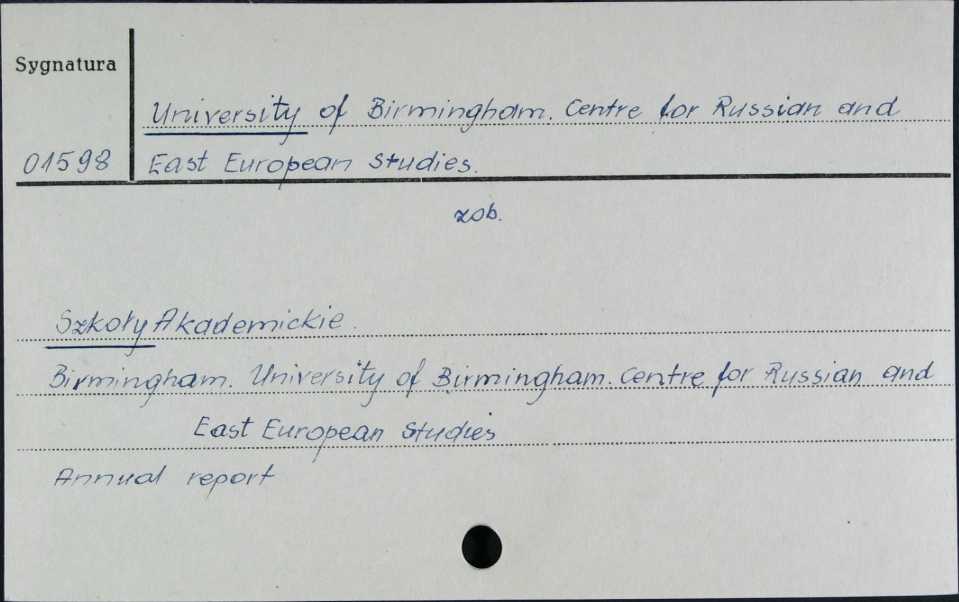 Sygnatura
University of Birmingham. Centre for Russian and
01598 East European Studies.
zob.
Szkoły Akademickie.
Birmingham. University of Birmingham. Centre for Russian and
East European Studies
Annual report